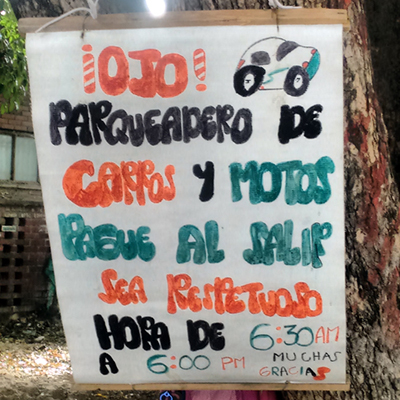 ¡OJO!
PARQUEADERO DE
CARROS Y MOTOS
PAGUE AL SALIR
SEA RESPETUOSO
HORA DE 6:30 AM
A 6:00 PM MUCHAS
GRACIAS